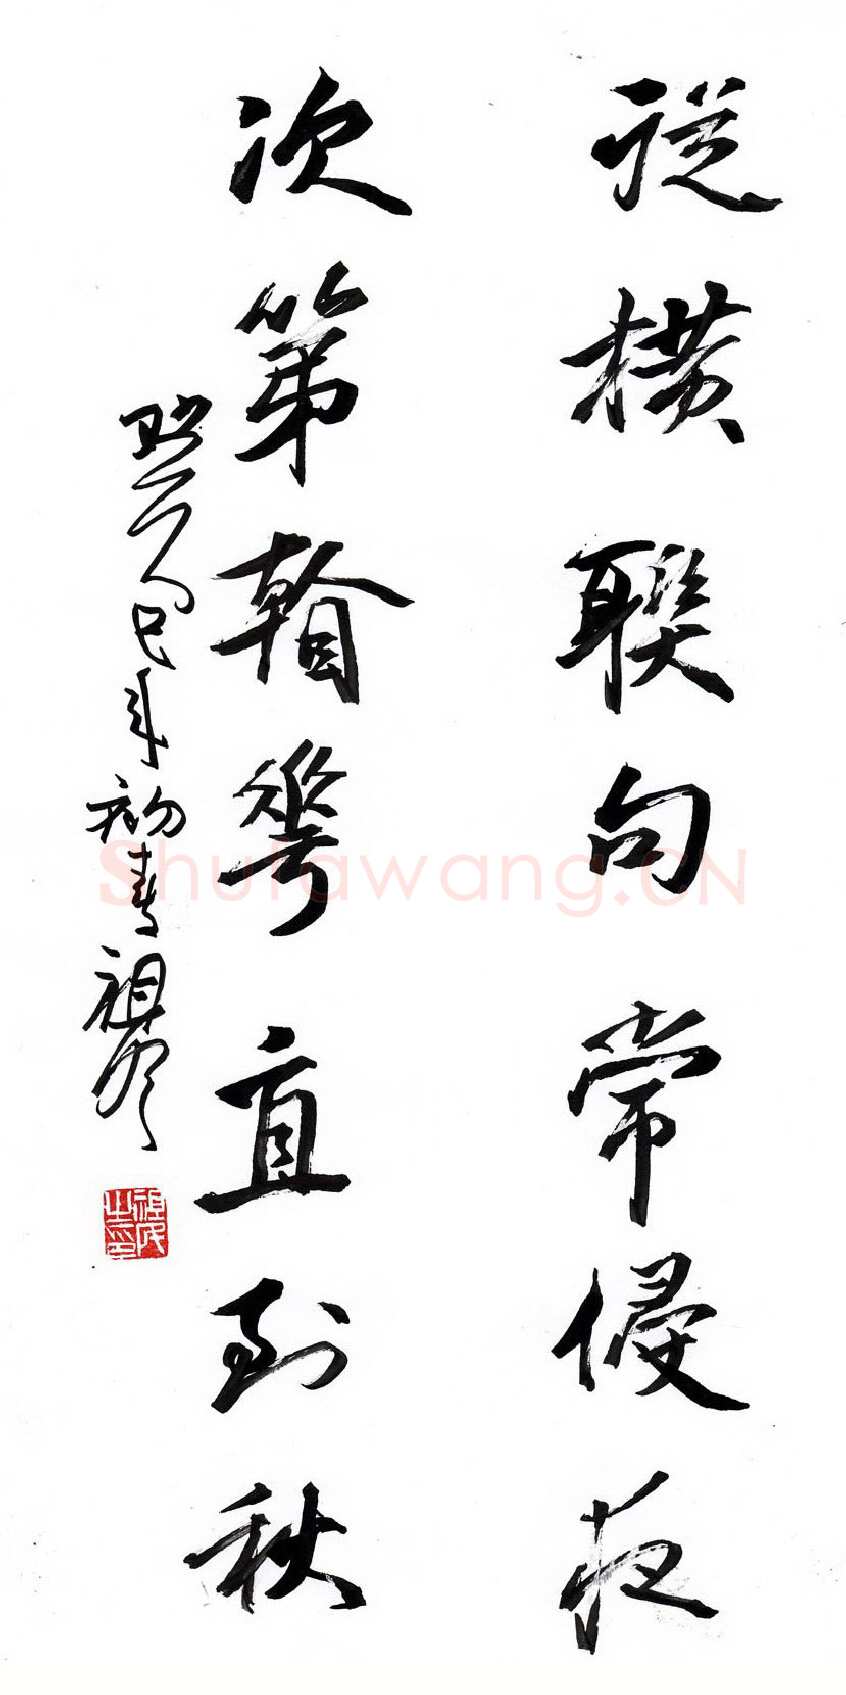 從橫聯句常侵夜
次第看華直到秋
巳年初春祖
Shufawang.CN